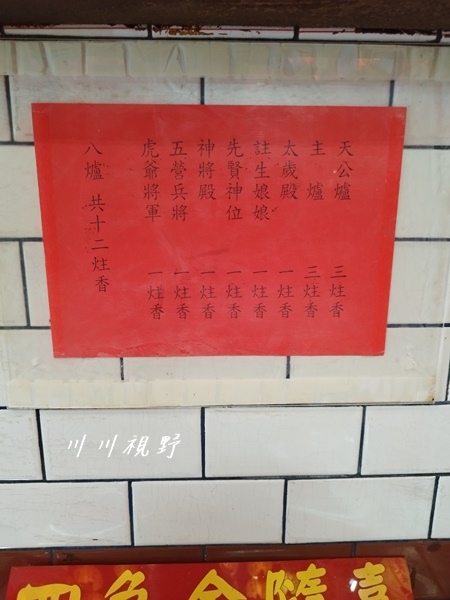 天公爐 三炷香
主爐 三炷香
太歲殿 一炷香
註生娘娘 一炷香
先賢神位 一炷香
神將殿 一炷香
五營兵將 一炷香
虎爺將軍 一炷香
八爐 共十二炷香
川川視野
四色金隨喜